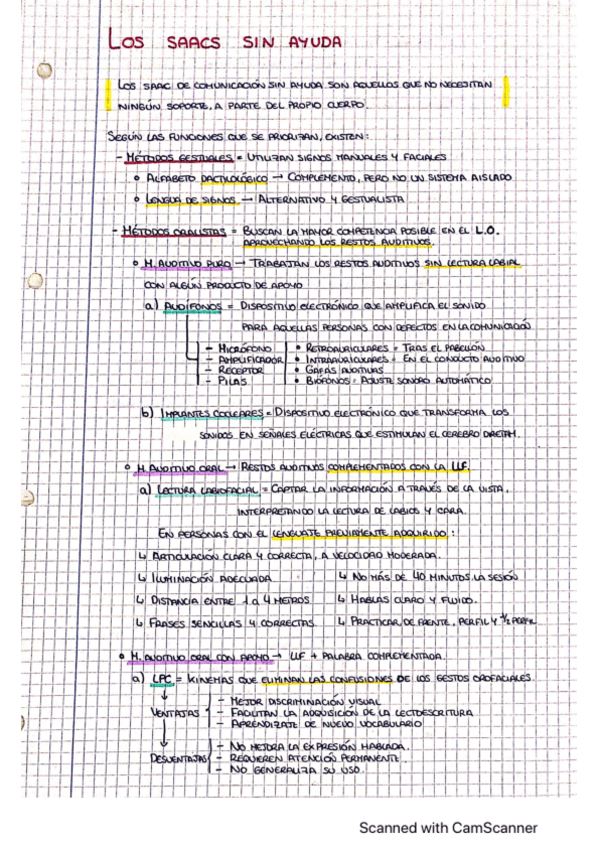 LOS SAACS SIN AYUDA
LOS SAAC DE COMUNICACIÓN SIN AYUDA SON AQUELLOS QUE NO NECESITAN
NINGÚN SOPORTE, A PARTE DEL PROPIO CUERPO.
SEGÚN LAS FUNCIONES QUE SE PRIORIZAN, EXISTEN:
- MÉTODOS GESTUALES = UTILIZAN SIGNOS MANUALES Y FACIALES
• ALFABETO DACTILOLÓGICO → COMPLEMENTO, PERO NO UN SISTEMA AISLADO
• LENGUA DE SIGNOS → ALTERNATIVO Y GESTUALISTA
- MÉTODOS ORALISTAS = BUSCAN LA MAYOR COMPETENCIA POSIBLE EN EL L.O.
APROVECHANDO LOS RESTOS AUDITIVOS.
• M. AUDITIVO PURO → TRABAJAN LOS RESTOS AUDITIVOS SIN LECTURA LABIAL
CON ALGÚN PRODUCTO DE APOYO
a) AUDÍFONOS = DISPOSITIVO ELECTRÓNICO QUE AMPLIFICA EL SONIDO
PARA AQUELLAS PERSONAS CON DEFECTOS EN LA COMUNICACIÓN
- MICRÓFONO • RETROAURICULARES = TRAS EL PABELLÓN
- AMPLIFICADOR • INTRAAURICULARES = EN EL CONDUCTO AUDITIVO
- RECEPTOR • GAFAS AUDITIVAS
- PILAS • BIÓFONOS = AJUSTE SONORO AUTOMÁTICO
b) IMPLANTES COCLEARES = DISPOSITIVO ELECTRÓNICO QUE TRANSFORMA LOS
SONIDOS EN SEÑALES ELÉCTRICAS QUE ESTIMULAN EL CEREBRO
• M. AUDITIVO ORAL → RESTOS AUDITIVOS COMPLEMENTADOS CON LA LLF.
a) LECTURA LABIOFACIAL = CAPTAR LA INFORMACIÓN A TRAVÉS DE LA VISTA,
INTERPRETANDO LA LECTURA DE LABIOS Y CARA.
EN PERSONAS CON EL LENGUAJE PREVIAMENTE ADQUIRIDO:
↳ ARTICULACIÓN CLARA Y CORRECTA, A VELOCIDAD MODERADA.
↳ ILUMINACIÓN ADECUADA ↳ NO MÁS DE 40 MINUTOS LA SESIÓN
↳ DISTANCIA ENTRE 1 a 4 METROS ↳ HABLAS CLARO Y FLUIDO.
↳ FRASES SENCILLAS Y CORRECTAS. ↳ PRACTICAR DE FRENTE, PERFIL Y ½ PERFIL
• M. AUDITIVO ORAL CON APOYO → LLF + PALABRA COMPLEMENTADA.
a) LPC = KINEMAS QUE ELIMINAN LAS CONFUSIONES DE LOS GESTOS OROFACIALES.
- MEJOR DISCRIMINACIÓN VISUAL
VENTAJAS - FACILITAN LA ADQUISICIÓN DE LA LECTOESCRITURA
- APRENDIZATE DE NUEVO VOCABULARIO
- NO MEJORA LA EXPRESIÓN HABLADA.
DESVENTAJAS - REQUIEREN ATENCIÓN PERMANENTE.
- NO GENERALIZA SU USO.
Scanned with CamScanner